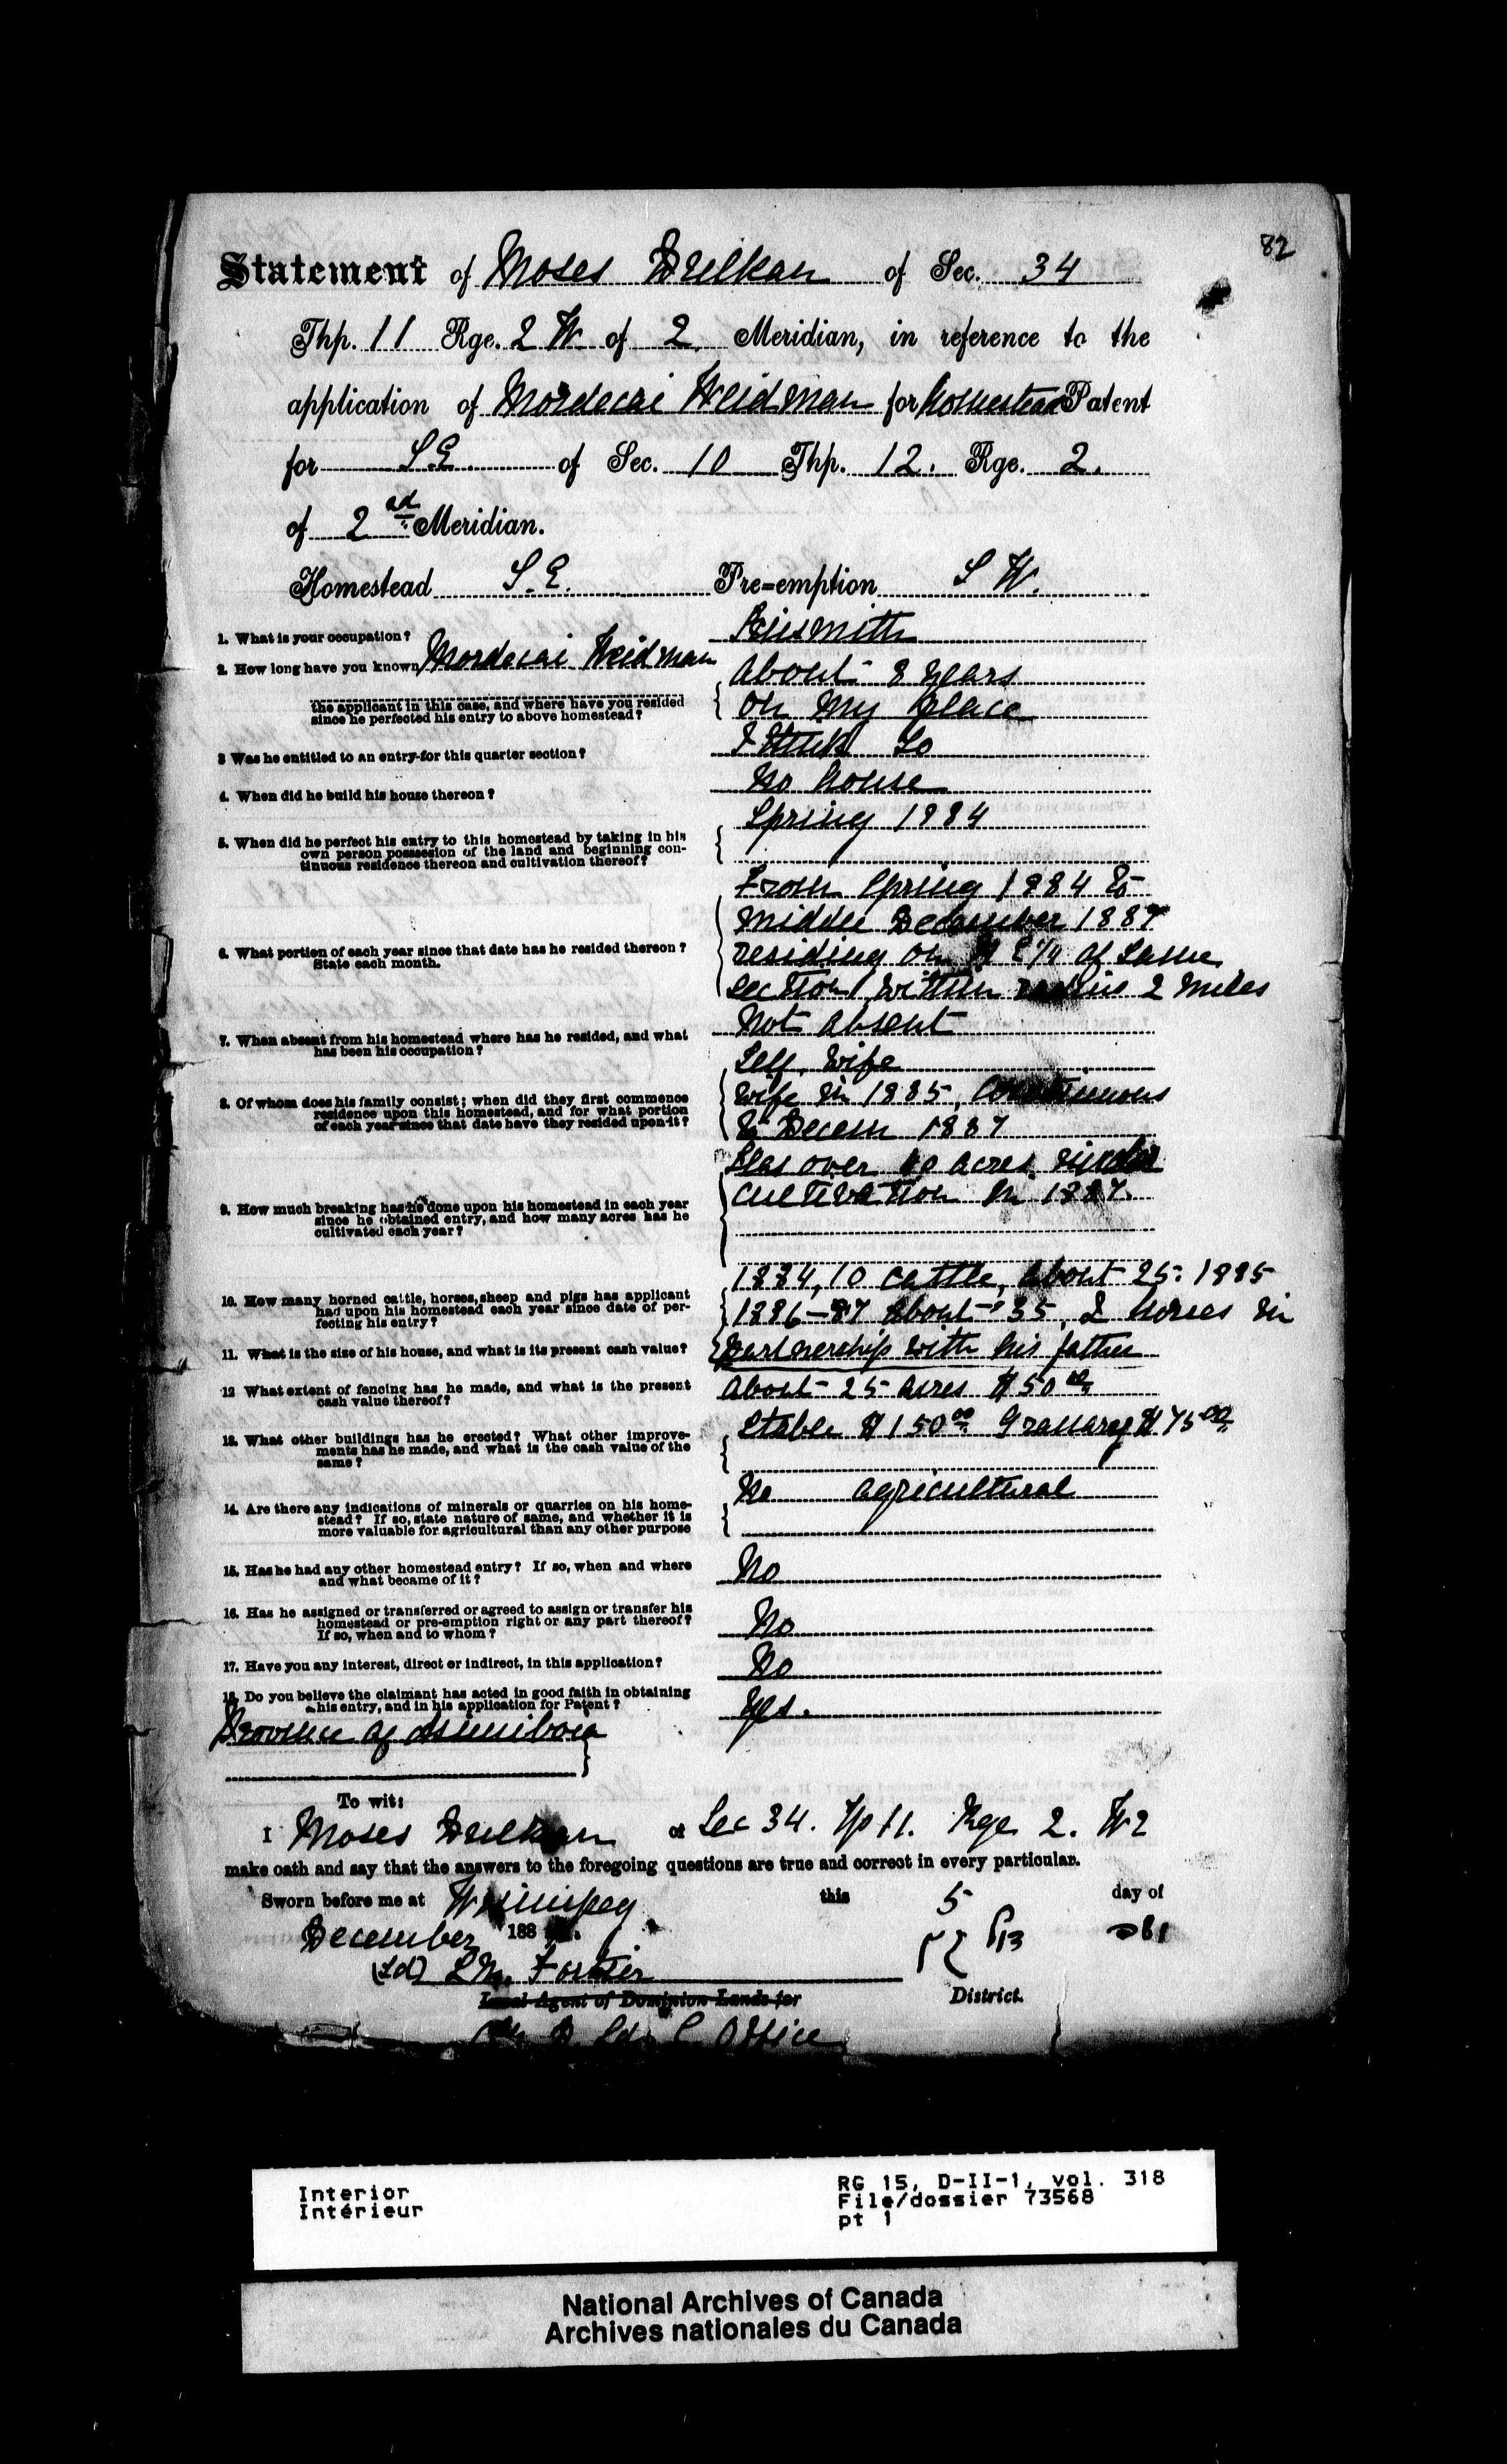 82
Statement of Moses Drelkan of Sec. 34
Thp. 11 Rge. 2 W of 2 Meridian, in reference to the
application of Mordecai Weidman for homestead Patent
for S.E. of Sec. 10 Thp. 12. Rge. 2.
of 2nd Meridian.
Homestead S.E. Pre-emption S W.
1. What is your occupation? Tinsmith
2. How long have you known Mordecai Weidman about 8 years
the applicant in this case, and where have you resided
since he perfected his entry to above homestead? On my place
3 Was he entitled to an entry for this quarter section? I think so
4. When did he build his house thereon? No house
5. When did he perfect his entry to this homestead by taking in his Spring 1884
own person possession of the land and beginning con-
tinuous residence thereon and cultivation thereof?
From Spring 1884 to
middle December 1887
6. What portion of each year since that date has he resided thereon? residing on 1/4 of same
State each month.
section within radius 2 miles
7. When absent from his homestead where has he resided, and what Not absent
has been his occupation?
Self, wife
8. Of whom does his family consist; when did they first commence wife in 1885, continuous
residence upon this homestead, and for what portion
of each year since that date have they resided upon it? to Decem 1887
Has over acres under
9. How much breaking has he done upon his homestead in each year cultivation in 1887.
since he obtained entry, and how many acres has he
cultivated each year?
1884, 10 cattle, about 25. 1885
10. How many horned cattle, horses, sheep and pigs has applicant 1886-87 about 35, 2 horses in
had upon his homestead each year since date of per-
fecting his entry?
11. What is the size of his house, and what is its present cash value? partnership with his father
12 What extent of fencing has he made, and what is the present about 25 acres $50 00
cash value thereof?
13. What other buildings has he erected? What other improve- Stable $150 00 Granary $75 00
ments has he made, and what is the cash value of the
same?
14. Are there any indications of minerals or quarries on his home- No agricultural
stead? If so, state nature of same, and whether it is
more valuable for agricultural than any other purpose
15. Has he had any other homestead entry? If so, when and where No
and what became of it?
16. Has he assigned or transferred or agreed to assign or transfer his No
homestead or pre-emption right or any part thereof?
If so, when and to whom?
17. Have you any interest, direct or indirect, in this application? No
18. Do you believe the claimant has acted in good faith in obtaining Yes.
his entry, and in his application for Patent?
Province of Assiniboia
To wit:
I Moses Drelkan of Sec 34. Tp 11. Rge 2. W2
make oath and say that the answers to the foregoing questions are true and correct in every particular.
Sworn before me at Winnipeg this 5 day of
December 188
(Sd) L M. Fortier
Local Agent of Dominion Lands for District.
Office
Interior
Intérieur
RG 15, D-II-1, vol. 318
File/dossier 73568
pt 1
National Archives of Canada
Archives nationales du Canada